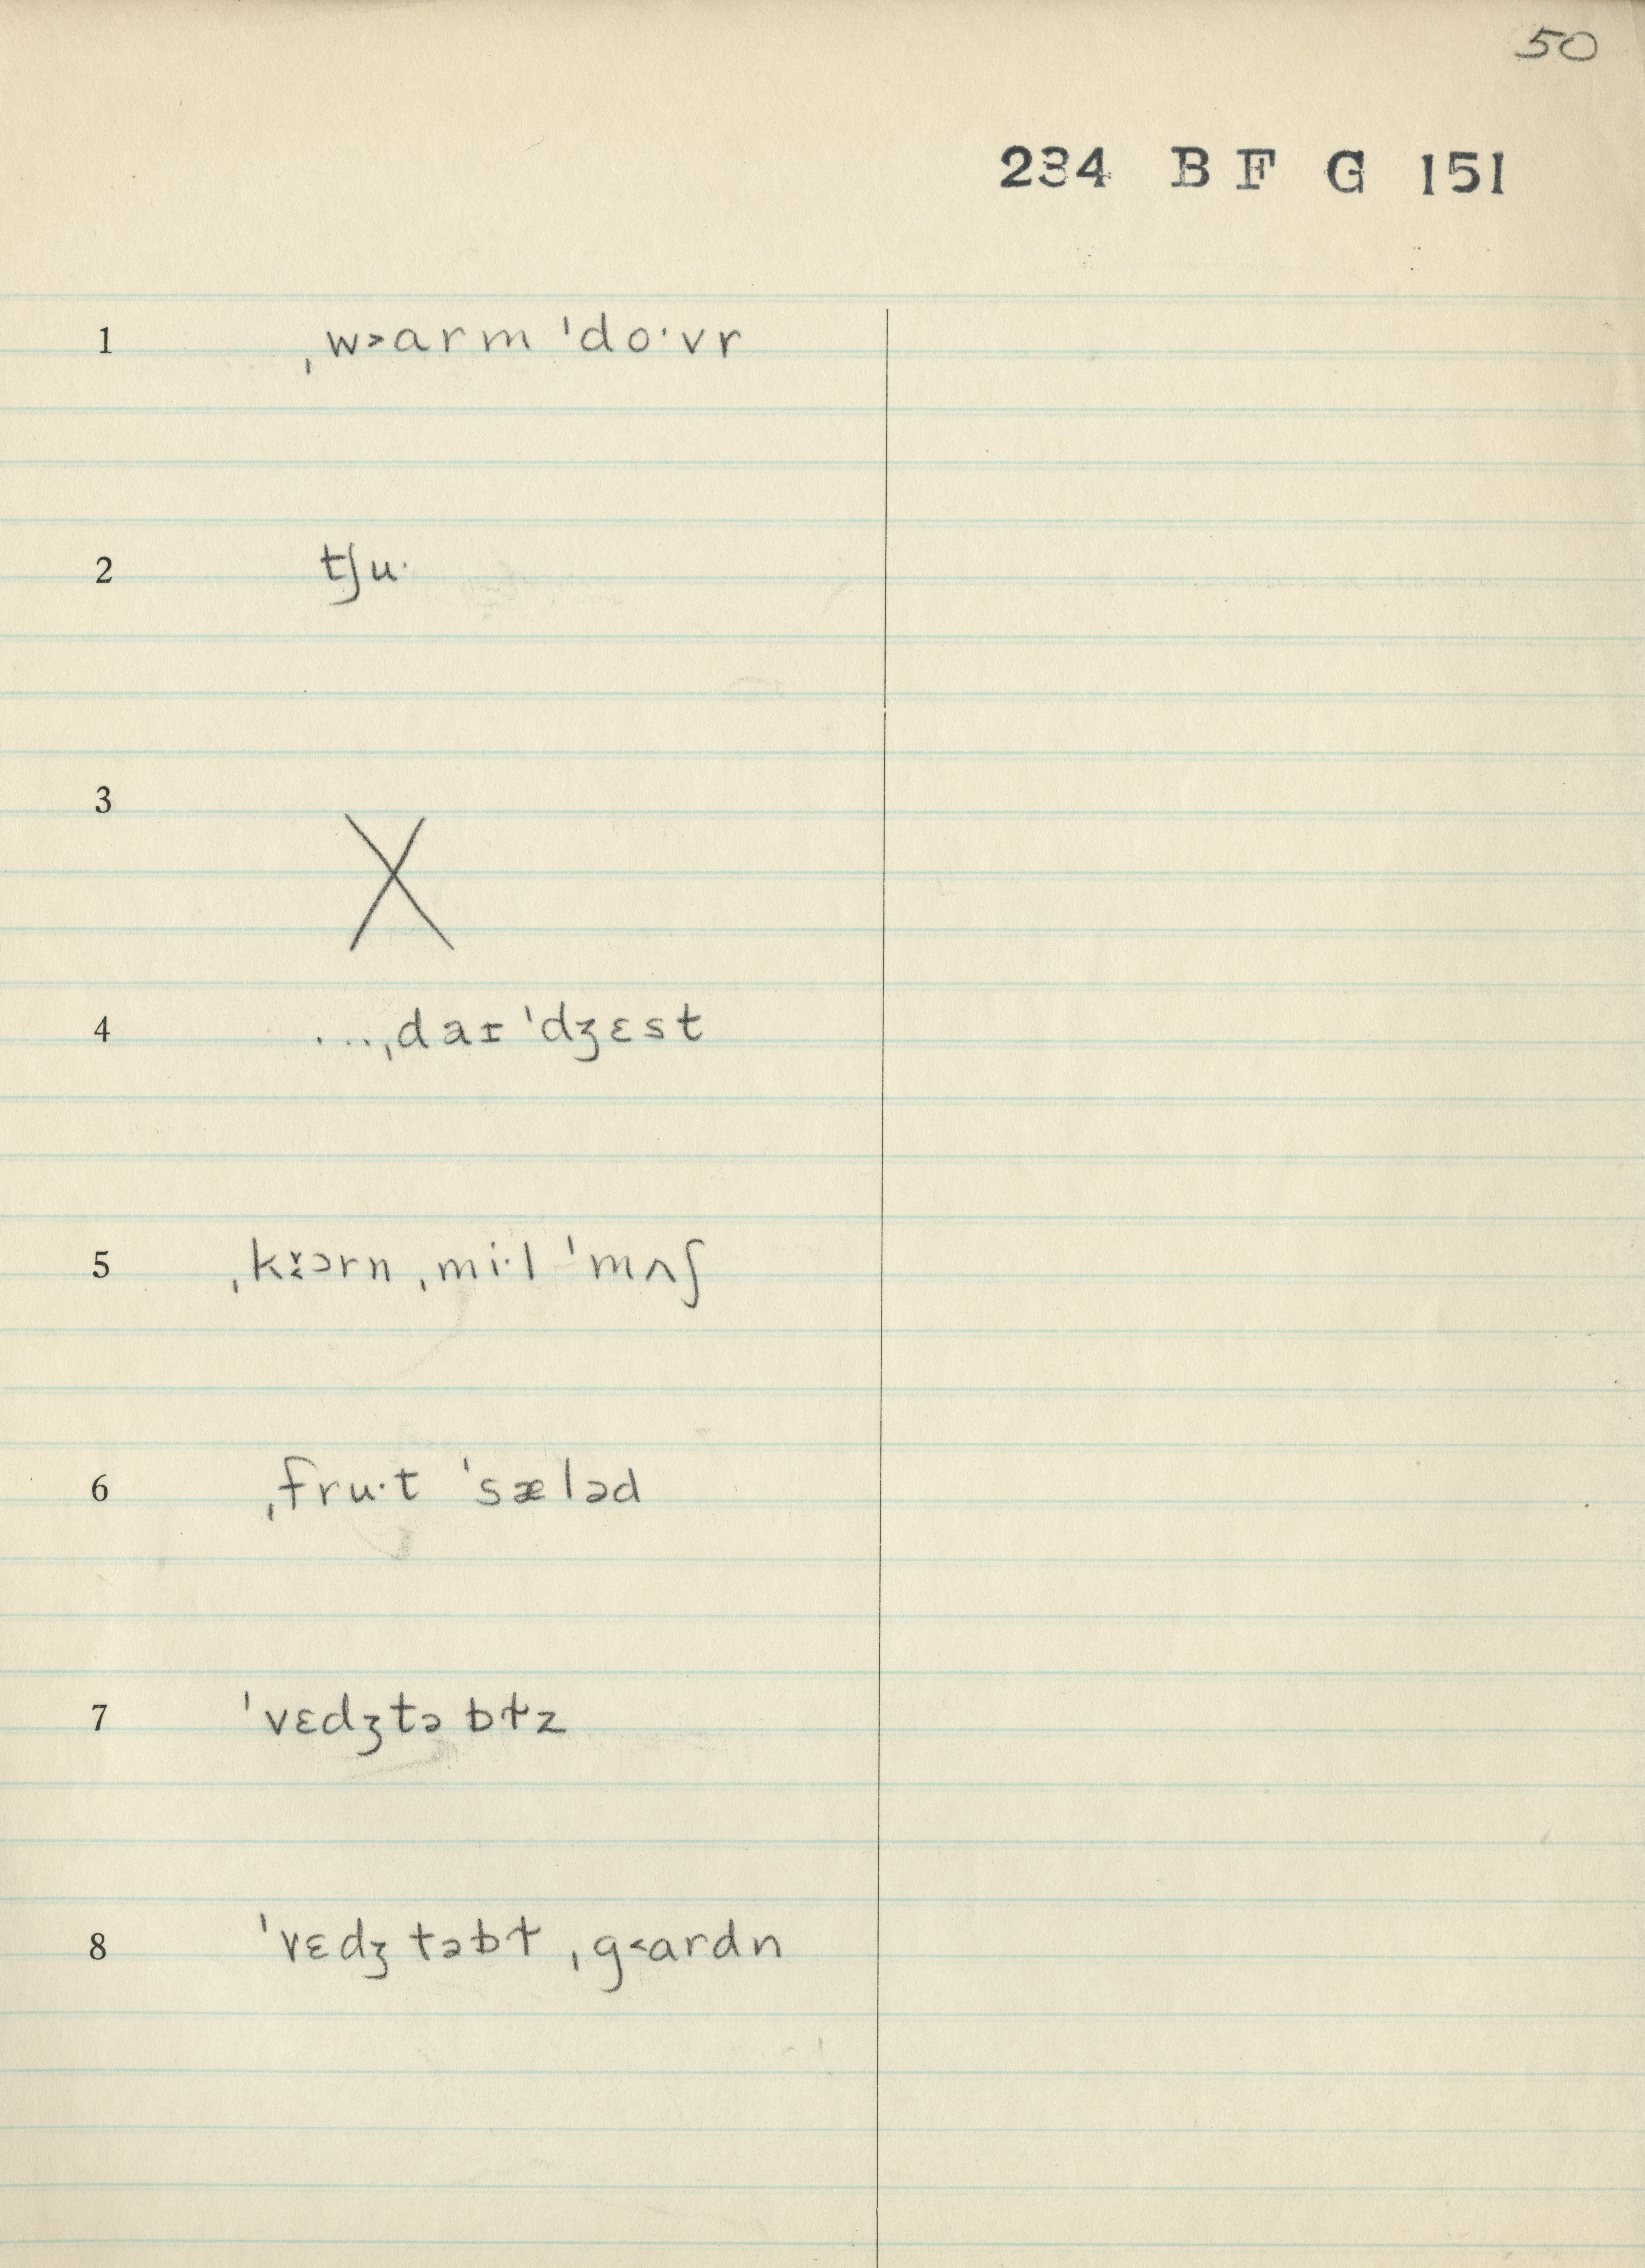 50
234 B F G 151
1 ˌw˃arm ˈdo·vr
2 tʃu·
3 X
4 ...ˌdaɪˈdʒɛst
5 ˌkɔrn ˌmi·l ˈmʌʃ
6 ˌfru·t ˈsæləd
7 ˈvɛdʒtəbɫz
8 ˈvɛdʒtəbɫ ˌg˂ardn